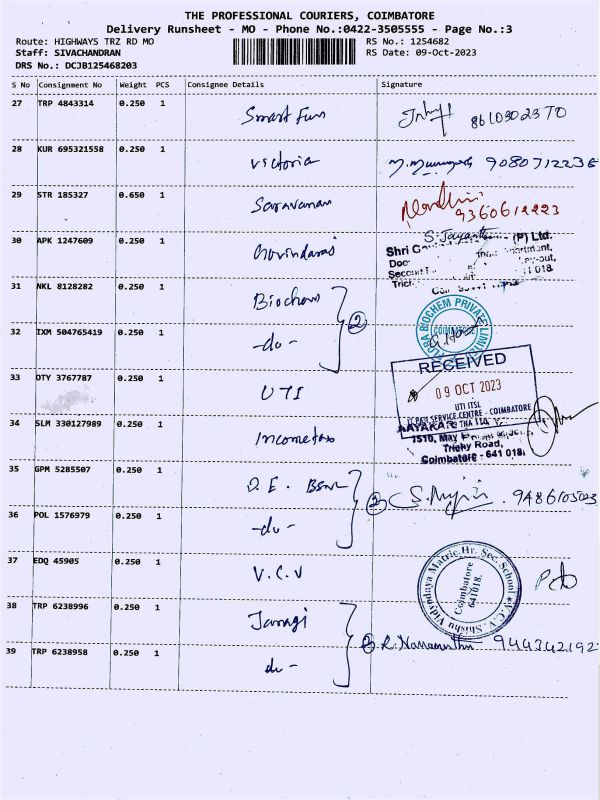 THE PROFESSIONAL COURIERS, COIMBATORE
Delivery Runsheet - MO - Phone No.:0422-3505555 - Page No.:3
Route: HIGHWAYS TRZ RD MO RS No.: 1254682
Staff: SIVACHANDRAN RS Date: 09-Oct-2023
DRS No.: DCJB125468203
S No Consignment No Weight PCS Consignee Details Signature
27 TRP 4843314 0.250 1 Smart Fun 8610302370
28 KUR 695321558 0.250 1 Victoria 9080712236
29 STR 185327 0.650 1 Saravanan 9360612223
30 APK 1247609 0.250 1 Govindaraj S. Jayanth
(P) Ltd.
Shri
31 NKL 8128282 0.250 1 Biochem 2
BIOCHEM PRIVATE LIMITED
COIMBATORE
32 IXM 504765419 0.250 1 -do-
RECEIVED
33 OTY 3767787 0.250 1 UTI 09 OCT 2023
UTI ITSL
PAN SERVICE CENTRE - COIMBATORE
34 SLM 330127989 0.250 1 Incometax
1510,
Trichy Road,
Coimbatore - 641 018.
35 GPM 5285507 0.250 1 D.E. BSNL 2 9486105023
36 POL 1576979 0.250 1 -do-
37 EDQ 45905 0.250 1 V.C.V
V.C.V. Shishu Vidyodaya Matric.Hr. Sec. School
Coimbatore
641018.
38 TRP 6238996 0.250 1 2 944342192
39 TRP 6238958 0.250 1 do -